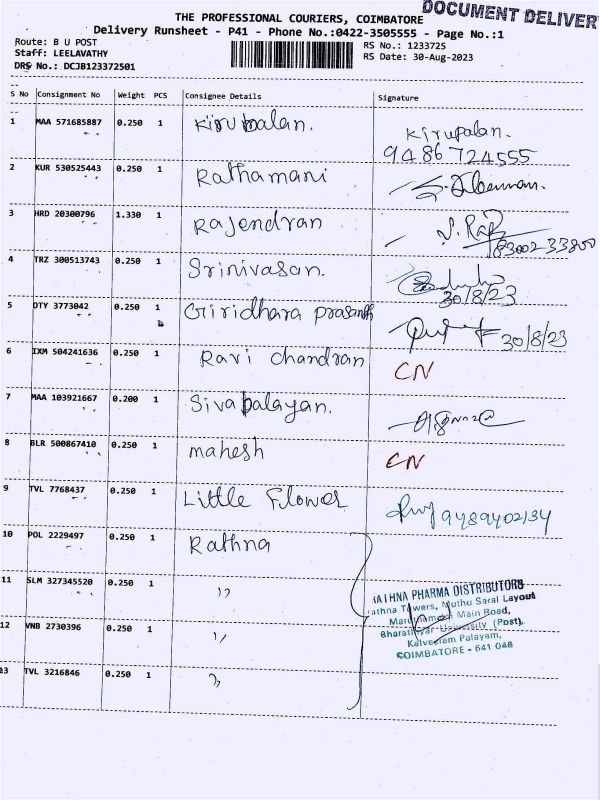 DOCUMENT DELIVER
THE PROFESSIONAL COURIERS, COIMBATORE
Delivery Runsheet - P41 - Phone No.:0422-3505555 - Page No.:1
Route: B U POST
Staff: LEELAVATHY
DRS No.: DCJB123372501
RS No.: 1233725
RS Date: 30-Aug-2023
S No Consignment No Weight PCS Consignee Details Signature
1 MAA 571685887 0.250 1 Kirubalan. Kirupalan.
9486724555
2 KUR 530525443 0.250 1 Rathamani
3 HRD 20300796 1.330 1 Rajendran
83002-33800
4 TRZ 300513743 0.250 1 Srinivasan.
30/8/23
5 DTY 3773042 0.250 1 Giridhara prasanth 30/8/23
6 IXM 504241636 0.250 1 Ravi chandran CN
7 MAA 103921667 0.200 1 Sivabalayan.
8 BLR 500867410 0.250 1 mahesh CN
9 TVL 7768437 0.250 1 Little Flower 9489402134
10 POL 2229497 0.250 1 Rathna
11 SLM 327345520 0.250 1 ,,
12 VNB 2730396 0.250 1 ,,
13 TVL 3216846 0.250 1 ,,
RATHNA PHARMA DISTRIBUTORS
Rathna Towers, Muthu Saral Layout
Maruthamalai Main Road,
Bharathiyar University (Post),
Kalveeram Palayam,
COIMBATORE - 641 046